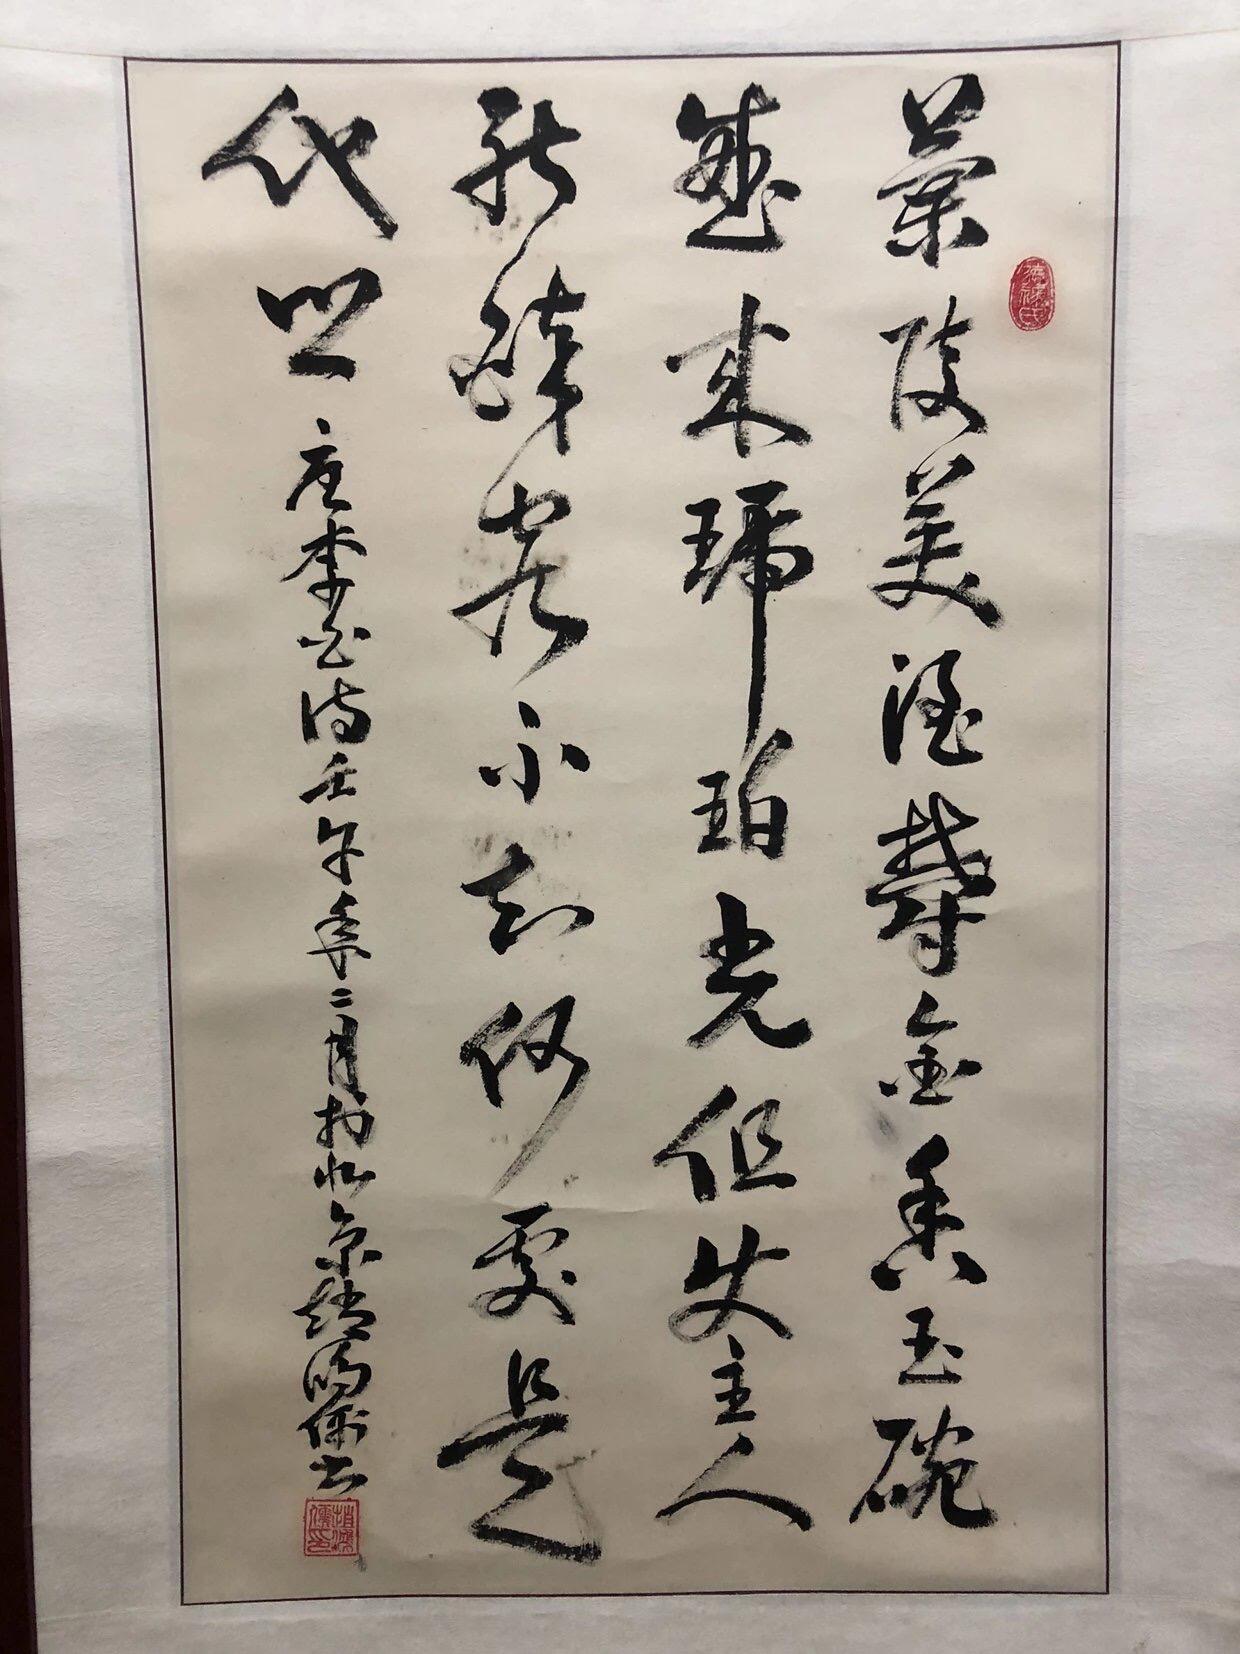 蘭陵美酒鬱金香玉碗
盛来琥珀光但使主人
能醉客不知何處是
他鄉
唐李白诗壬午年二月於北京趙